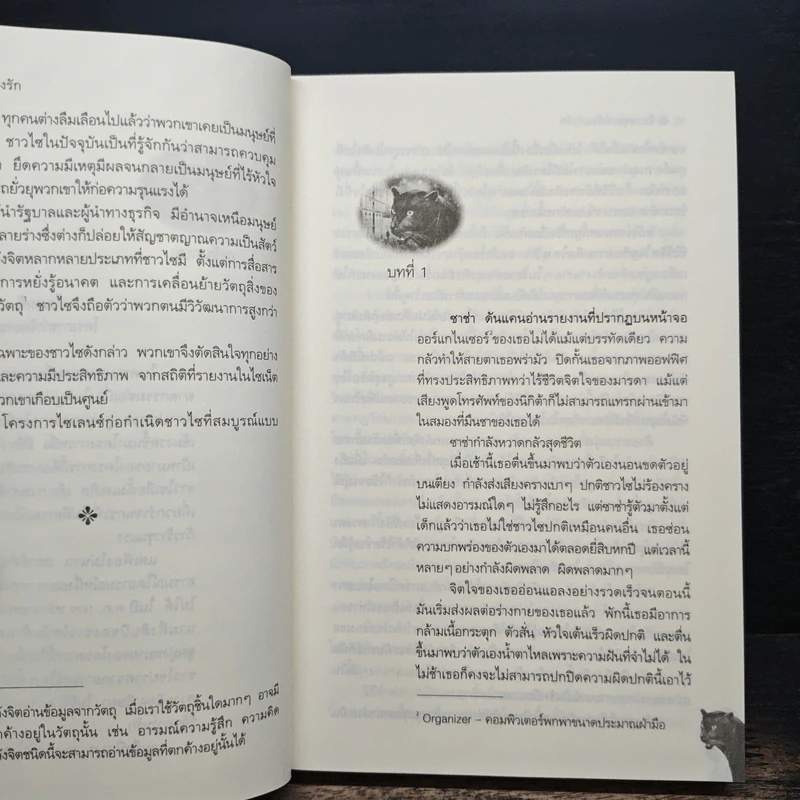 งรัก
ทุกคนต่างลืมเลือนไปแล้วว่าพวกเขาเคยเป็นมนุษย์ที่
ชาวไซในปัจจุบันเป็นที่รู้จักกันว่าสามารถควบคุม
ยึดความมีเหตุมีผลจนกลายเป็นมนุษย์ที่ไร้หัวใจ
ถยั่วยุพวกเขาให้ก่อความรุนแรงได้
นำรัฐบาลและผู้นำทางธุรกิจ มีอำนาจเหนือมนุษย์
ลายร่างซึ่งต่างก็ปล่อยให้สัญชาตญาณความเป็นสัตว์
ังจิตหลากหลายประเภทที่ชาวไซมี ตั้งแต่การสื่อสาร
การหยั่งรู้อนาคต และการเคลื่อนย้ายวัตถุสิ่งของ
วัตถุ¹ ชาวไซจึงถือตัวว่าพวกตนมีวิวัฒนาการสูงกว่า
ฉพาะของชาวไซดังกล่าว พวกเขาจึงตัดสินใจทุกอย่าง
ละความมีประสิทธิภาพ จากสถิติที่รายงานในไซเน็ต
วกเขาเกือบเป็นศูนย์
โครงการไซเลนซ์ก่อกำเนิดชาวไซที่สมบูรณ์แบบ
ังจิตอ่านข้อมูลจากวัตถุ เมื่อเราใช้วัตถุชิ้นใดมากๆ อาจมี
กค้างอยู่ในวัตถุนั้น เช่น อารมณ์ความรู้สึก ความคิด
ังจิตชนิดนี้จะสามารถอ่านข้อมูลที่ตกค้างอยู่นั้นได้
บทที่ 1
ซาช่า ดันแคนอ่านรายงานที่ปรากฏบนหน้าจอ
ออร์แกไนเซอร์¹ของเธอไม่ได้แม้แต่บรรทัดเดียว ความ
กลัวทำให้สายตาเธอพร่ามัว ปิดกั้นเธอจากภาพออฟฟิศ
ที่ทรงประสิทธิภาพทว่าไร้ชีวิตจิตใจของมารดา แม้แต่
เสียงพูดโทรศัพท์ของนิกิต้าก็ไม่สามารถแทรกผ่านเข้ามา
ในสมองที่มึนชาของเธอได้
ซาช่ากำลังหวาดกลัวสุดชีวิต
เมื่อเช้านี้เธอตื่นขึ้นมาพบว่าตัวเองนอนขดตัวอยู่
บนเตียง กำลังส่งเสียงครางเบาๆ ปกติชาวไซไม่ร้องคราง
ไม่แสดงอารมณ์ใดๆ ไม่รู้สึกอะไร แต่ซาช่ารู้ตัวมาตั้งแต่
เด็กแล้วว่าเธอไม่ใช่ชาวไซปกติเหมือนคนอื่น เธอซ่อน
ความบกพร่องของตัวเองมาได้ตลอดยี่สิบหกปี แต่เวลานี้
หลายๆ อย่างกำลังผิดพลาด ผิดพลาดมากๆ
จิตใจของเธออ่อนแอลงอย่างรวดเร็วจนตอนนี้
มันเริ่มส่งผลต่อร่างกายของเธอแล้ว พักนี้เธอมีอาการ
กล้ามเนื้อกระตุก ตัวสั่น หัวใจเต้นเร็วผิดปกติ และตื่น
ขึ้นมาพบว่าตัวเองน้ำตาไหลเพราะความฝันที่จำไม่ได้ ใน
ไม่ช้าเธอก็คงจะไม่สามารถปกปิดความผิดปกตินี้เอาไว้
¹ Organizer – คอมพิวเตอร์พกพาขนาดประมาณฝ่ามือ